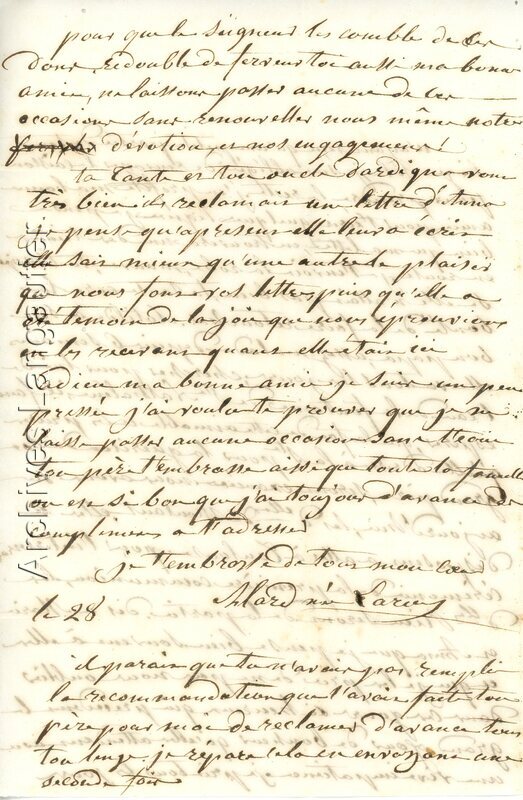 pour que le Seigneur les comble de ses
dons, redouble de ferveur toi aussi ma bonne
amie, ne laissons passer aucune de ces
occasions sans renouveller nous même notre
dévotion et nos engagements!
ta Tante et ton oncle d'ardigna vont
très bien ils reclamait un lettre d'
je pense qu'apresens elle leur a écrit
elle sais mieux qu'une autre le plaisir
que nous fons vos lettres puis qu'elle a
été temoin de la joie que nous eprouvions
en les recevant quant elle étais ici
adieu ma bonne amie je suis un peu
pressée j'ai voulu te prouver que je ne
laisse passer aucune occasion sans t'ecrire
ton père t'embrasse aissi que toute la famille
on en si bon que j'ai toujour d'avance des
complimens a t'adresser
je t'embrasse de tous mon coeur
Alard née Larieu
le 28
il parais que tu n'avais pas rempli
la recommandation que t'avais fait ton
père pour moi de reclamer d'avance tous
ton linge. je repare cela en envoyant une
seconde fois
Archives Langaurier